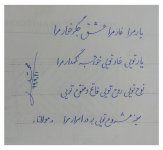 یار مرا غار مرا عشق جگرخوار مرا
یار تویی غار تویی خواجه نگهدار مرا
نوح تویی روح تویی فاتح و مفتوح تویی
سینه مشروح تویی بر در اسرار مرا مولانا